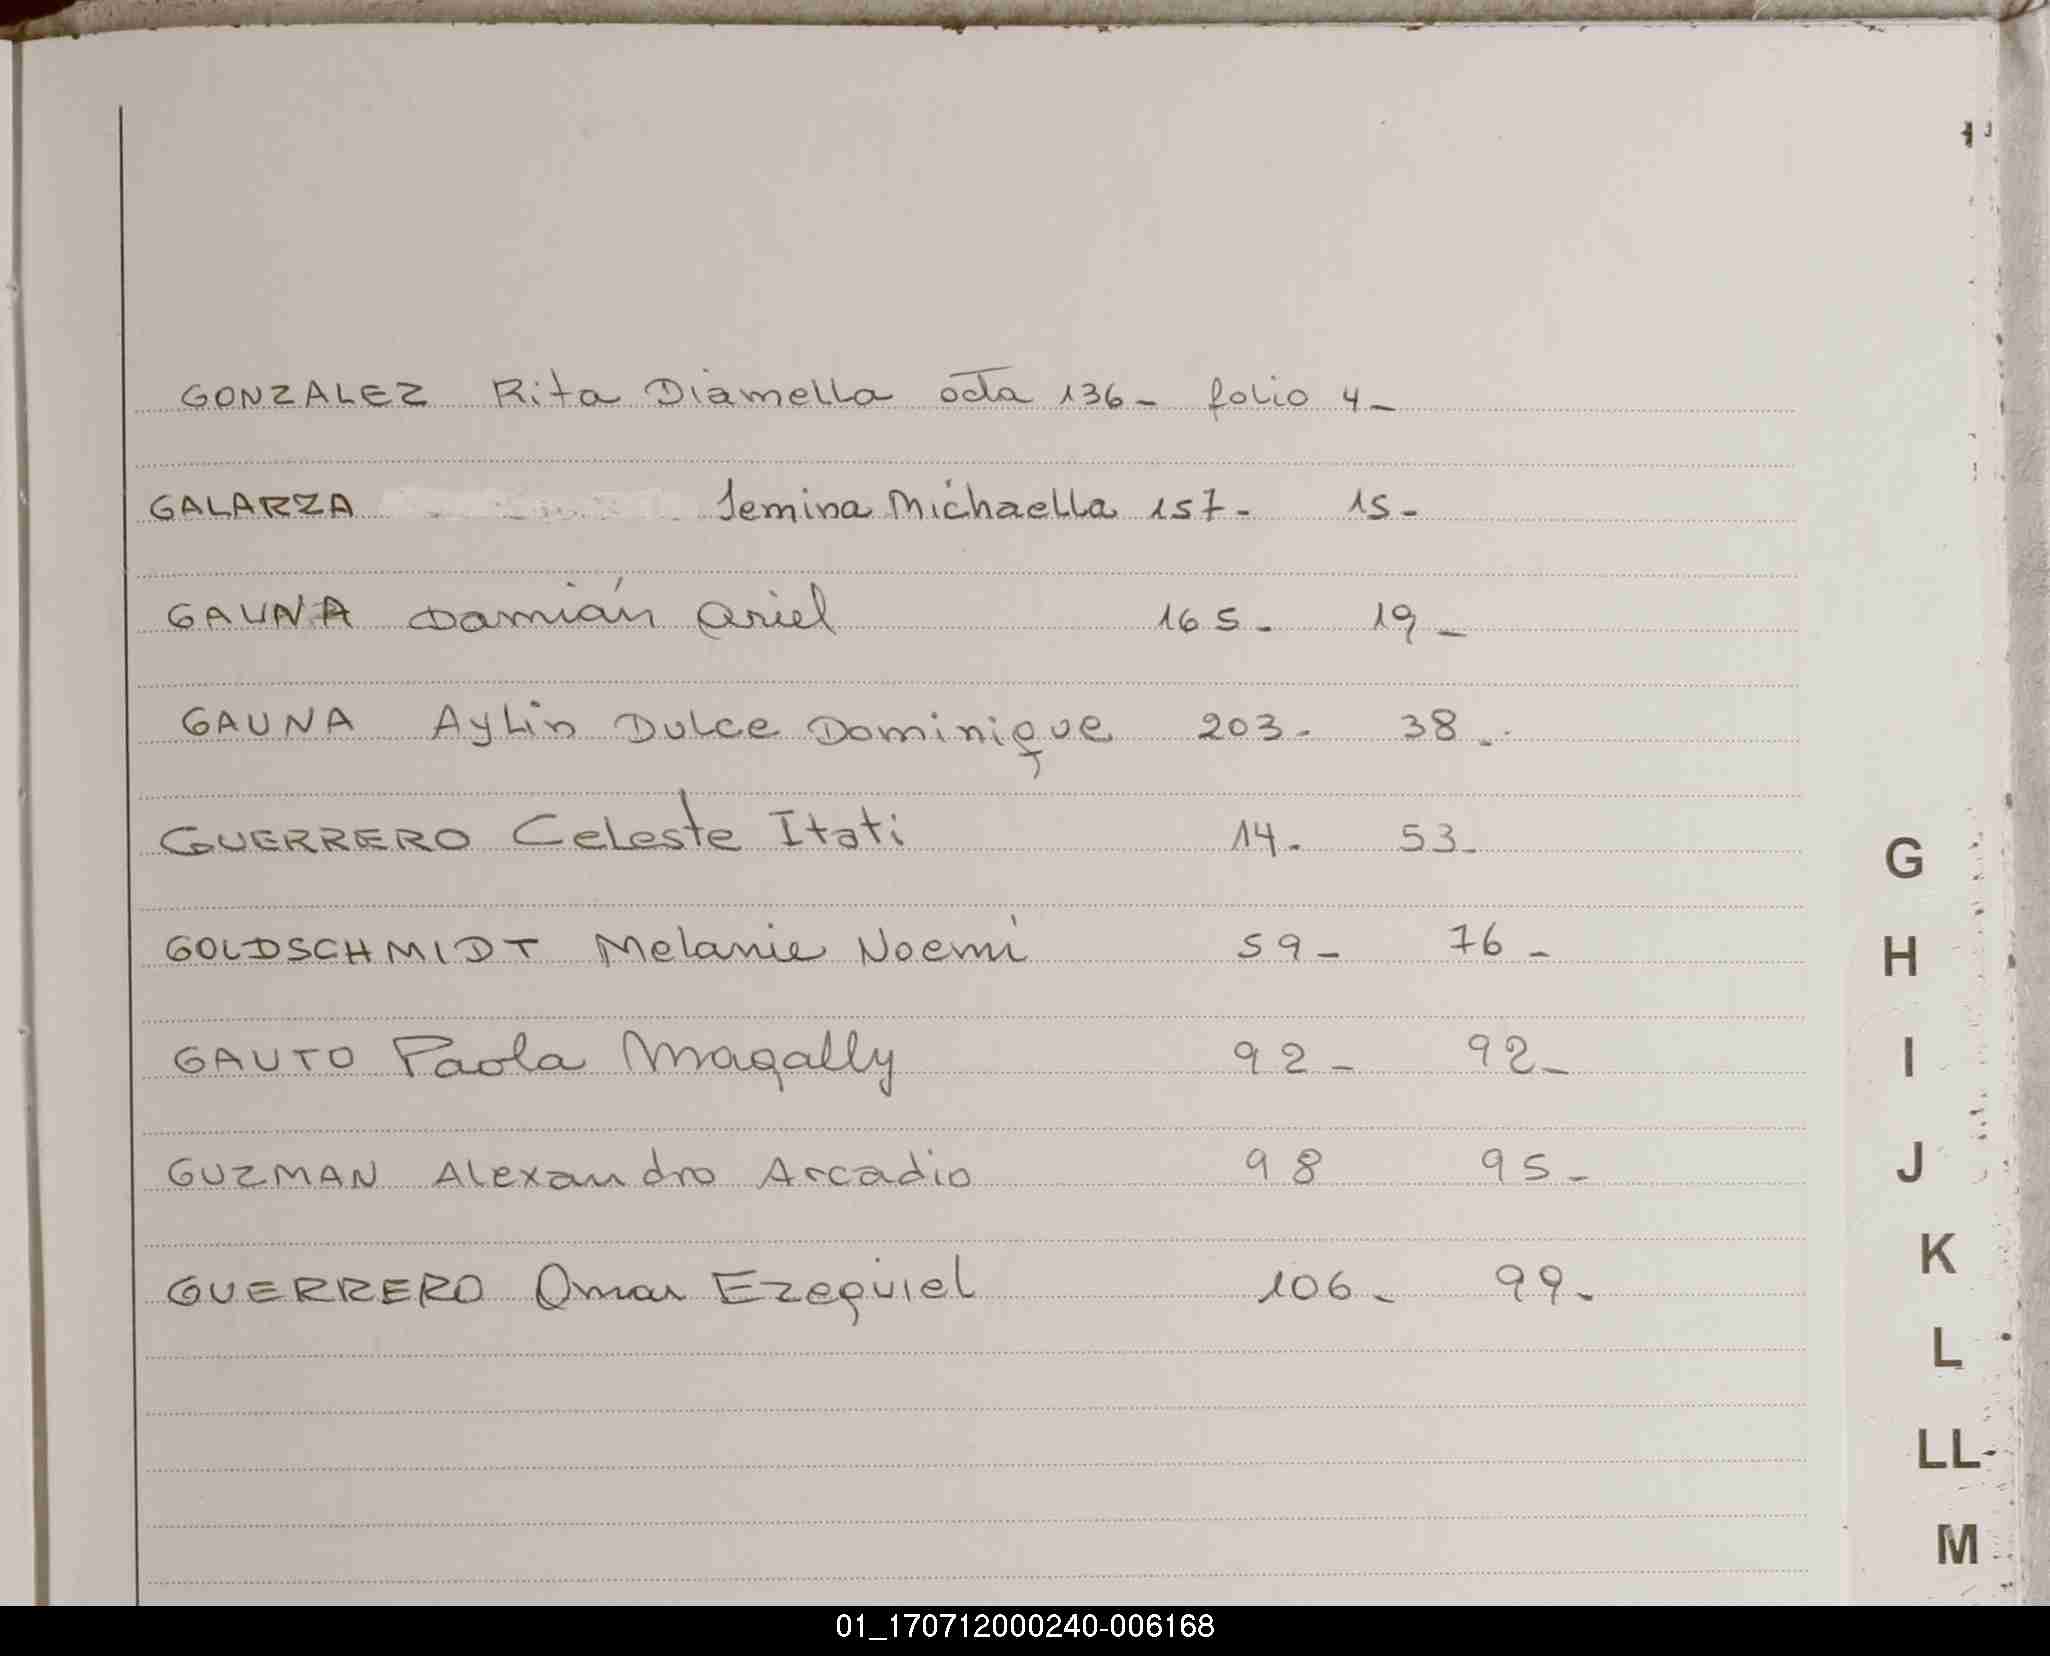 GONZALEZ Rita Diamella acta 136- folio 4-
GALARZA Jemina Michaella 157- 15-
GAUNA Damián Ariel 165- 19-
GAUNA Aylin Dulce Dominique 203- 38-
GUERRERO Celeste Itati 14- 53-
GOLDSCHMIDT Melanie Noemí 59- 76-
GAUTO Paola Magally 92- 92-
GUZMAN Alexandro Arcadio 98 95-
GUERRERO Omar Ezequiel 106- 99-
G
H
I
J
K
L
LL
M
01_170712000240-006168